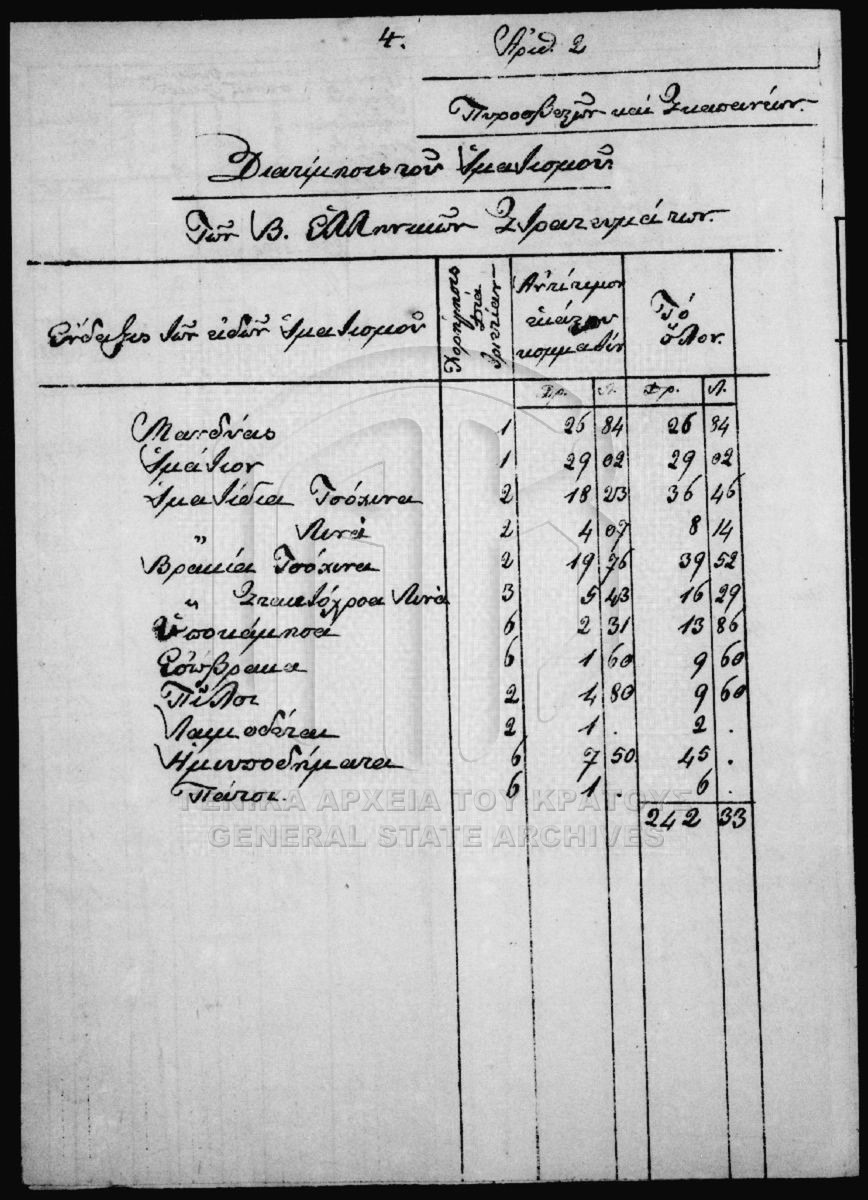 4.
Ἀριθ. 2
Πυροσβεστῶν καὶ Σκαπανέων.
Διατίμησις τοῦ ἱματισμοῦ
Τῶν Β. Ἑλληνικῶν Στρατευμάτων.
Ἔνδειξις τῶν εἰδῶν ἱματισμοῦ
Χορήγησις
διὰ
τριετίαν
Ἀντίτιμον
ἑκάστου
κομματίου
Τὸ
ὅλον.
Δρ. Λ. Δρ. Λ.
Μανδύας 1 26 84 26 84
Ἱμάτιον 1 29 02 29 02
Ἱματίδια Τσόχινα 2 18 23 36 46
〃 Λινὰ 2 4 07 8 14
Βρακία Τσόχινα 2 19 76 39 52
〃 Σταχτόχροα Λινὰ 3 5 43 16 29
Ὑποκάμησα 6 2 31 13 86
Ἐσώβρακα 6 1 60 9 60
Πῖλοι 2 4 80 9 60
Λαιμοδέται 2 1 . 2 .
Ἡμιυποδήματα 6 7 50 45 .
Πάτοι. 6 1 . 6 .
242 33
ΓΕΝΙΚΑ ΑΡΧΕΙΑ ΤΟΥ ΚΡΑΤΟΥΣ
GENERAL STATE ARCHIVES